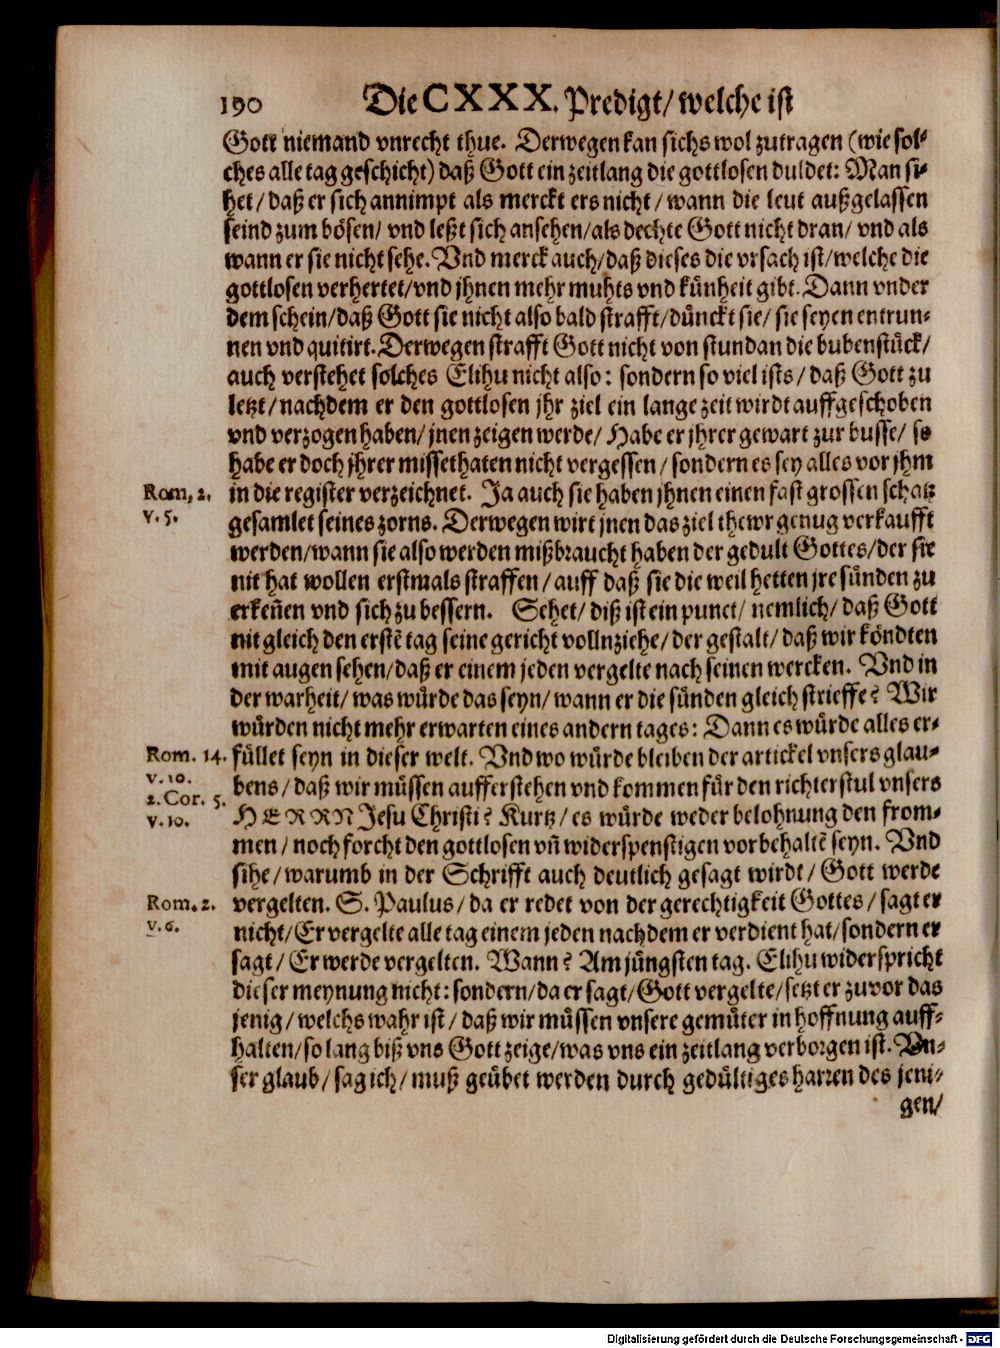 190 Die CXXX. Predigt/ welche ist
Gott niemand vnrecht thue. Derwegen kan sichs wol zutragen (wie sol-
ches alle tag geschicht) daß Gott ein zeitlang die gottlosen duldet: Man si-
het/ daß er sich annimpt als merckt ers nicht/ wann die leut außgelassen
seind zum bösen/ vnd leßt sich ansehen/ als dechte Gott nicht dran/ vnd als
wann er sie nicht sehe. Vnd merck auch/ daß dieses die vrsach ist/ welche die
gottlosen verhertet/ vnd jhnen mehr muhts vnd künheit gibt. Dann vnder
dem schein/ daß Gott sie nicht also bald strafft/ dünckt sie/ sie seyen entrun-
nen vnd quitirt. Derwegen strafft Gott nicht von stundan die bubenstück/
auch verstehet solches Elihu nicht also: sondern so viel ists/ daß Gott zu
letzt/ nachdem er den gottlosen jhr ziel ein lange zeit wirdt auffgeschoben
vnd verzogen haben/ jnen zeigen werde/ Habe er jhrer gewart zur busse/ so
habe er doch jhrer missethaten nicht vergessen/ sondern es sey alles vor jhm
Rom. 2. in die register verzeichnet. Ja auch sie haben jhnen einen fast grossen schatz
v. 5. gesamlet seines zorns. Derwegen wirt jnen das ziel thewr genug verkaufft
werden/ wann sie also werden mißbraucht haben der gedult Gottes/ der sie
nit hat wollen erstmals straffen/ auff daß sie die weil hetten jre sünden zu
erkeñen vnd sich zu bessern. Sehet/ diß ist ein punct/ nemlich/ daß Gott
nit gleich den erstē tag seine gericht vollnziehe/ der gestalt/ daß wir köndten
mit augen sehen/ daß er einem jeden vergelte nach seinen wercken. Vnd in
der warheit/ was würde das seyn/ wann er die sünden gleich strieffe? Wir
würden nicht mehr erwarten eines andern tages: Dann es würde alles er-
Rom. 14. füllet seyn in dieser welt. Vnd wo würde bleiben der artickel vnsers glau-
v. 10. bens/ daß wir müssen aufferstehen vnd kommen für den richterstul vnsers
2. Cor. 5.
v. 10. HERRN Jesu Christi? Kurtz/ es würde weder belohnung den from-
men/ noch forcht den gottlosen vñ widerspenstigen vorbehaltē seyn. Vnd
sihe/ warumb in der Schrifft auch deutlich gesagt wirdt/ Gott werde
Rom. 2. vergelten. S. Paulus/ da er redet von der gerechtigkeit Gottes/ sagt er
v. 6. nicht/ Er vergelte alle tag einem jeden nachdem er verdient hat/ sondern er
sagt/ Er werde vergelten. Wann? Am jüngsten tag. Elihu widerspricht
dieser meynung nicht: sondern/ da er sagt/ Gott vergelte/ setzt er zuvor das
jenig/ welchs wahr ist/ daß wir müssen vnsere gemüter in hoffnung auff-
halten/ so lang biß vns Gott zeige/ was vns ein zeitlang verborgen ist. Vn-
ser glaub/ sag ich/ muß geübet werden durch gedültiges harren des jeni-
gen/
Digitalisierung gefördert durch die Deutsche Forschungsgemeinschaft - DFG